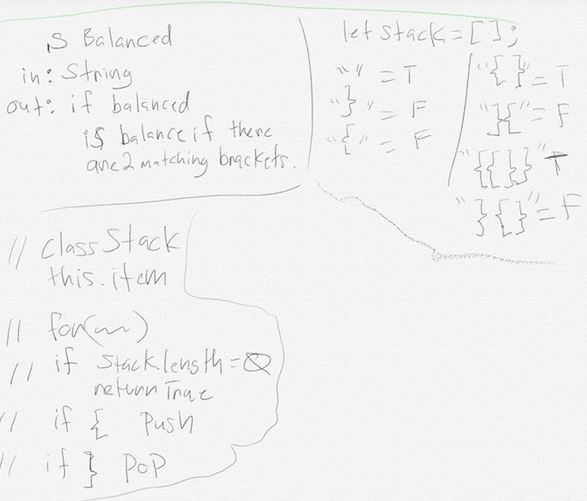 is Balanced
in: String
out: if balanced
is balance if there
are 2 matching brackets.
let stack = [ ];
"" = T
"}" = F
"{" = F
"{ }" = T
"}{" = F
"{{}}" T
"}{}" = F
// class Stack
this.item
// for(~~)
// if stack length = 0
return True
// if { push
// if } pop